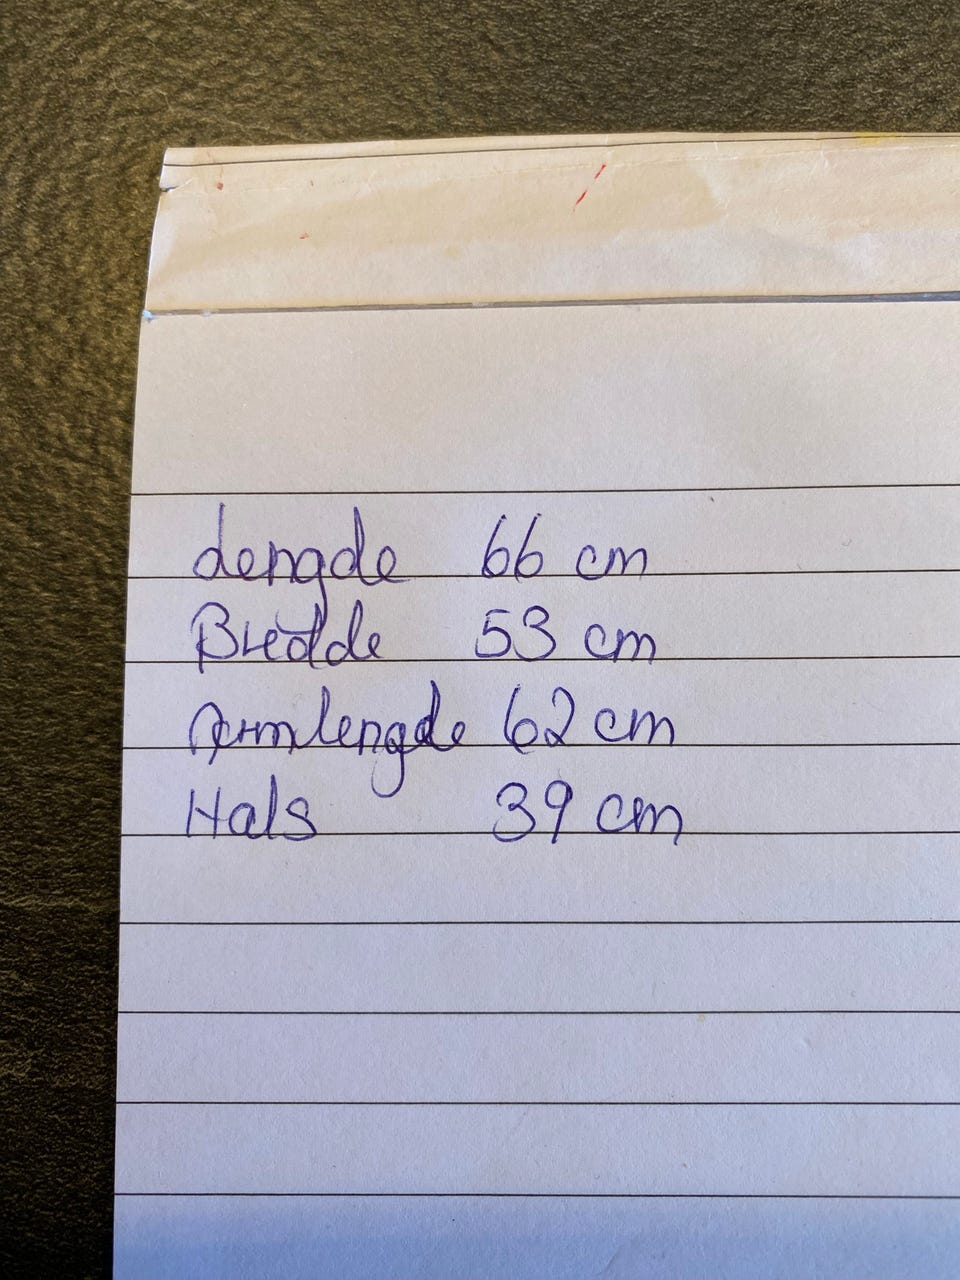 Lengde 66 cm
Bredde 53 cm
Armlengde 62 cm
Hals 39 cm